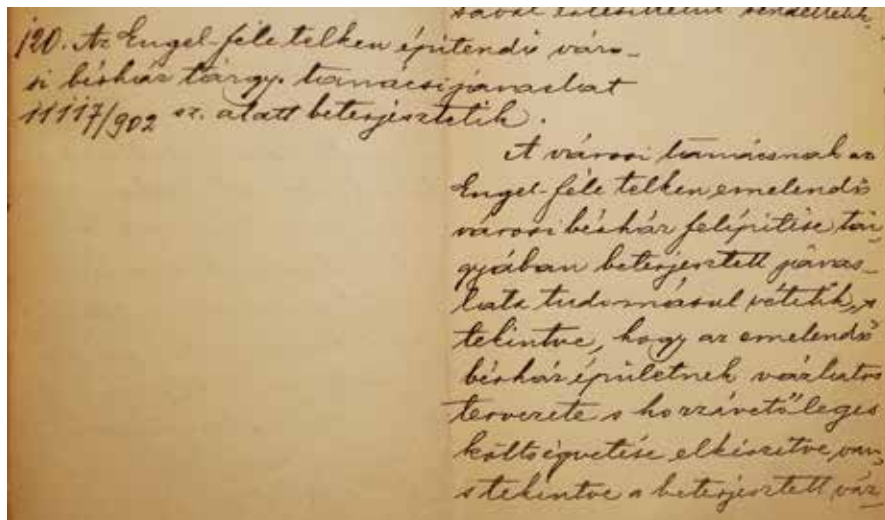 sával értesíttetni rendeltetik.
120. Az Engel-féle telken építendő váro-
si bérház tárgy. tanácsi javaslat
11117/902 sz. alatt beterjesztetik.
A városi tanácsnak az
Engel-féle telken emelendő
városi bérház felépítése tár-
gyában beterjesztett javas-
lata tudomásul vétetik, s
tekintve, hogy az emelendő
bérház épületnek vázlatos
tervezete s hozzávetőleges
költségvetése elkészítve van,
s tekintve a beterjesztett váz-